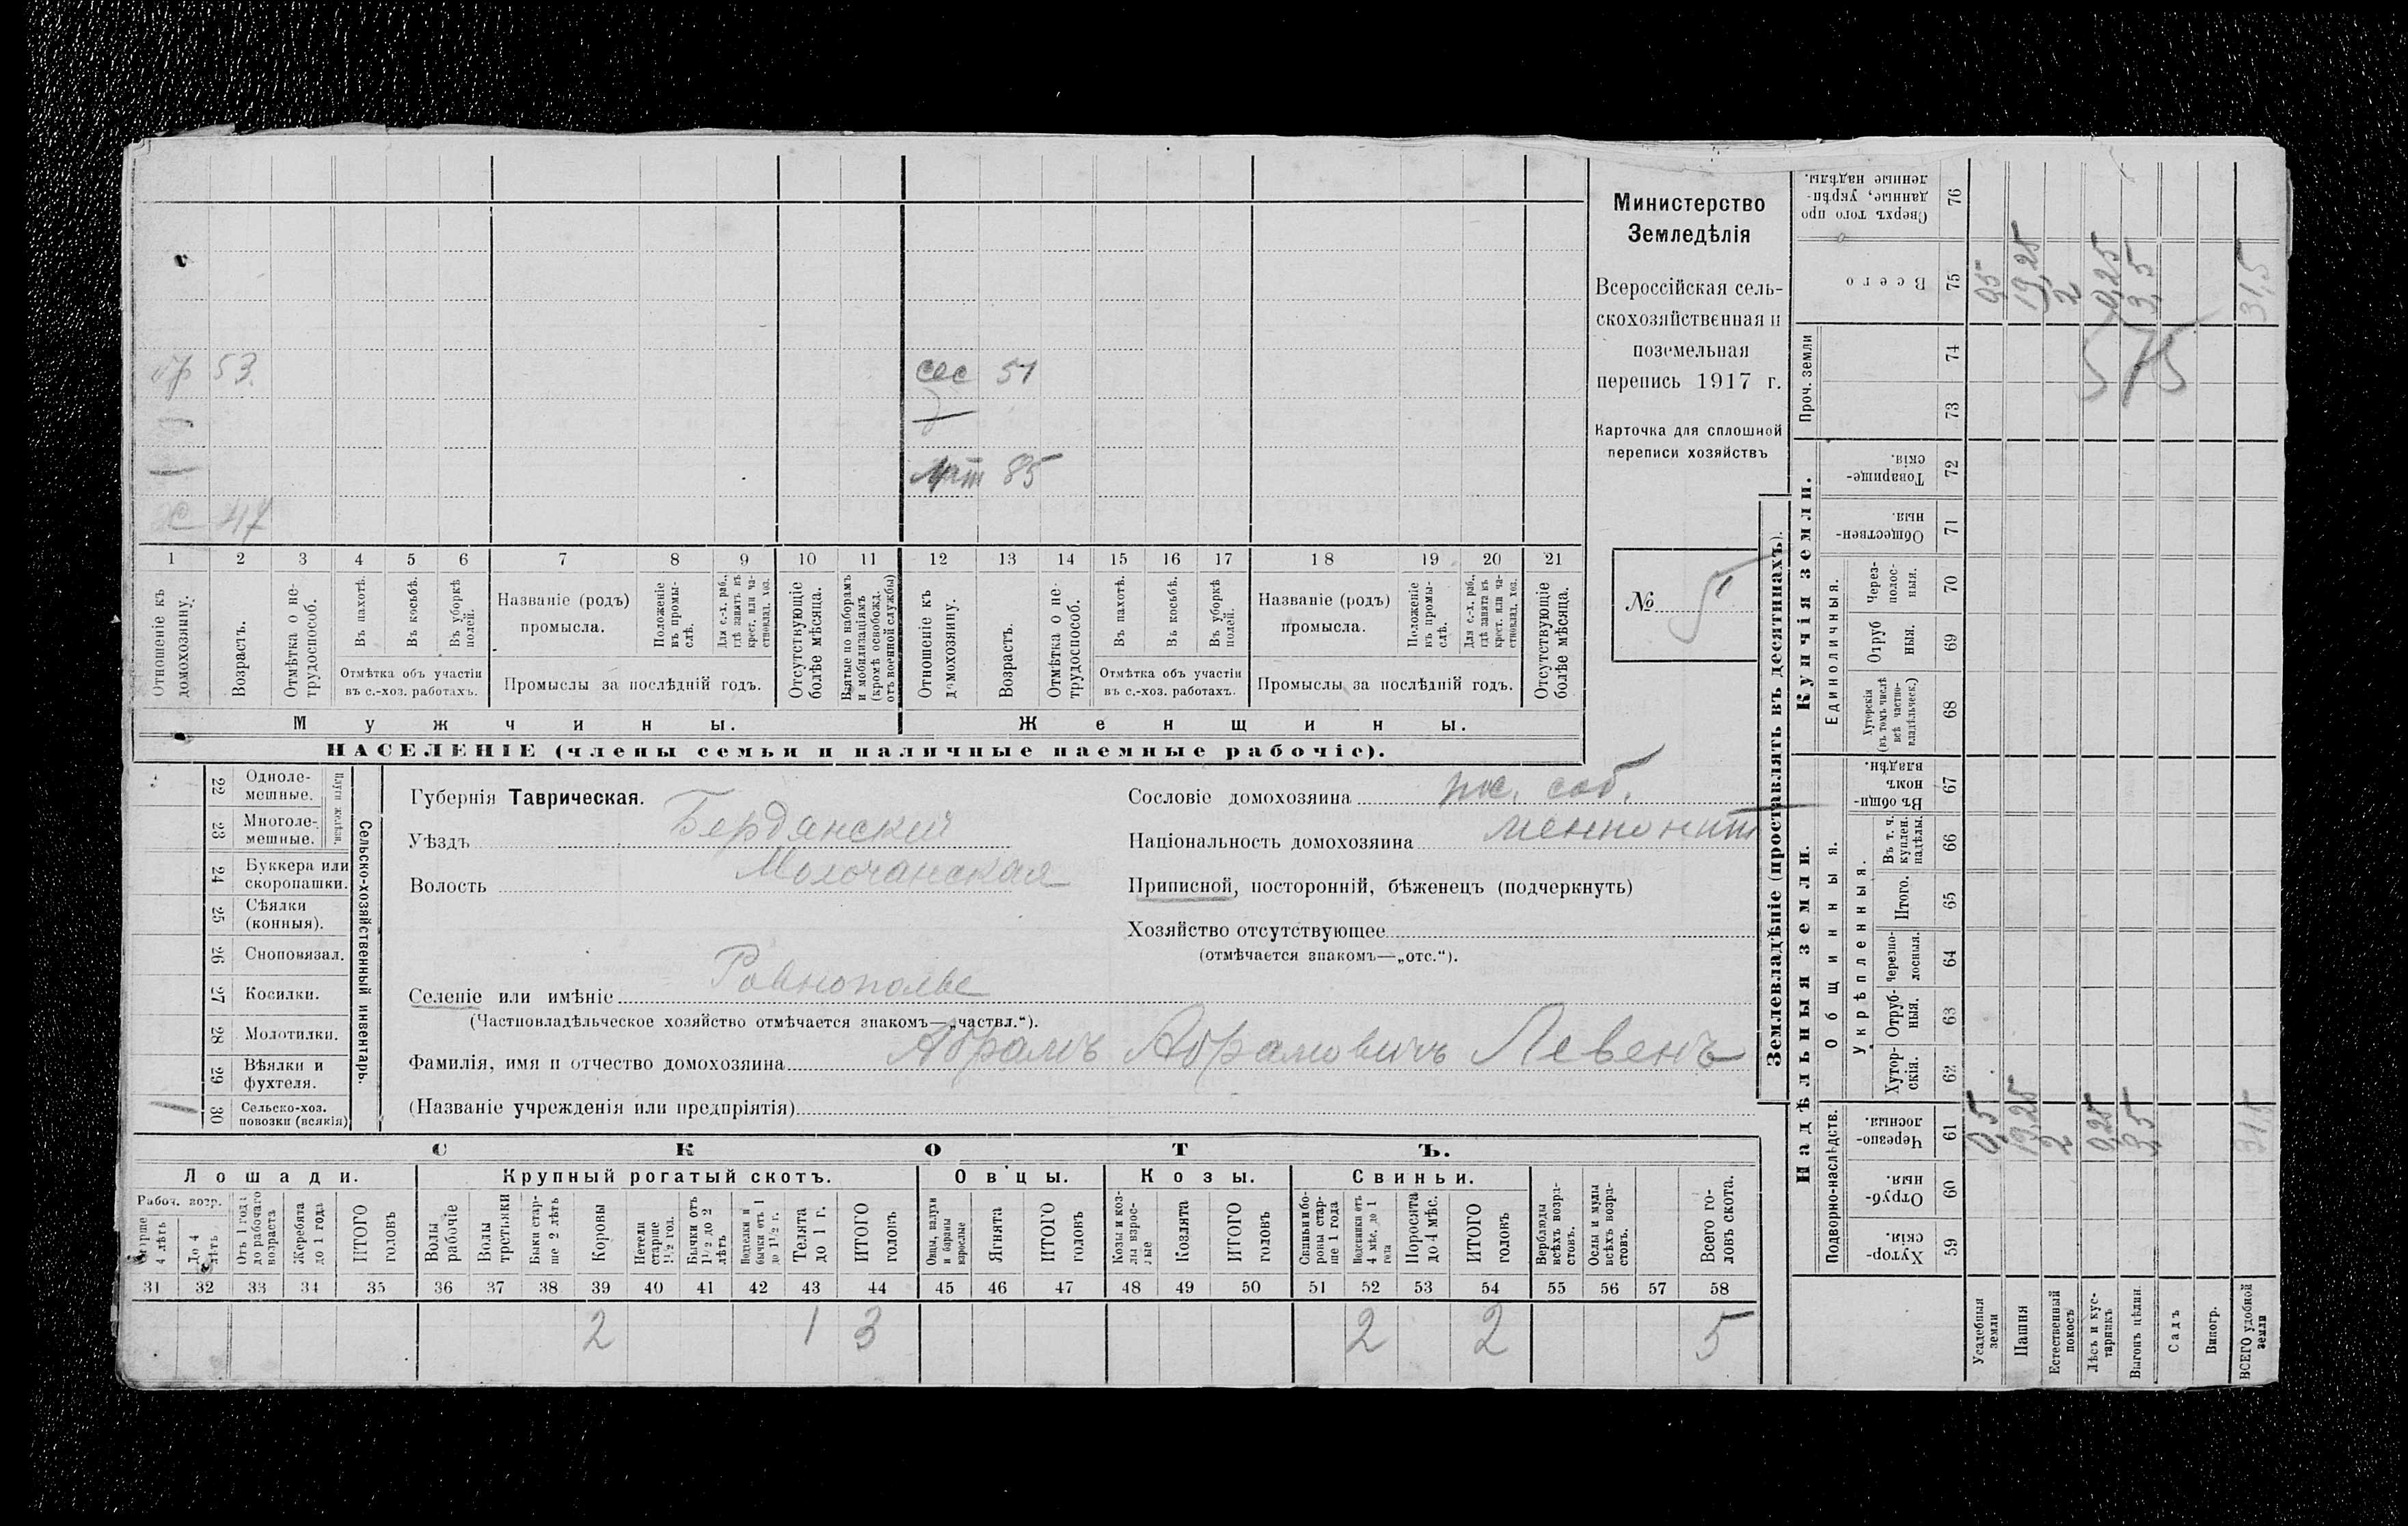 Министерство
Земледѣлія
Всероссійская сель-
скохозяйственная и
поземельная
перепись 1917 г.
Карточка для сплошной
переписи хозяйствъ
№ 5
53. сес 51
мат 85
47
1 2 3 4 5 6 7 8 9 10 11 12 13 14 15 16 17 18 19 20 21
Отношеніе къ домохозяину.
Возрастъ.
Отмѣтка о не-трудоспособ.
Въ пахотѣ.
Въ косьбѣ.
Въ уборкѣ полей.
Отмѣтка объ участіи
въ с.-хоз. работахъ.
Названіе (родъ)
промысла.
Положеніе въ промы-слѣ.
Для с.-х. раб., гдѣ занятъ въ крест. или ча-стновлад. хоз.
Промыслы за послѣдній годъ.
Отсутствующіе болѣе мѣсяца.
Взятые по наборамъ и мобилизаціямъ (кромѣ освобожд. отъ военной службы)
Отношеніе къ домохозяину.
Возрастъ.
Отмѣтка о не-трудоспособ.
Въ пахотѣ.
Въ косьбѣ.
Въ уборкѣ полей.
Отмѣтка объ участіи
въ с.-хоз. работахъ.
Названіе (родъ)
промысла.
Положеніе въ промы-слѣ.
Для с.-х. раб., гдѣ занята въ крест. или ча-стновлад. хоз.
Промыслы за послѣдній годъ.
Отсутствующіе болѣе мѣсяца.
Мужчины. Женщины.
НАСЕЛЕНІЕ (члены семьи и наличные наемные рабочіе).
Сельско-хозяйственный инвентарь.
Плуги желѣзн.
22 Одноле-мешные.
23 Многоле-мешные.
24 Буккера или скоропашки.
25 Сѣялки (конныя).
26 Сноповязал.
27 Косилки.
28 Молотилки.
29 Вѣялки и фухтеля.
1 30 Сельско-хоз. повозки (всякія)
Губернія Таврическая.
Уѣздъ Бердянский
Волость Молочанская
Селеніе или имѣніе Ровнополье
(Частновладѣльческое хозяйство отмѣчается знакомъ—„частвл.“).
Фамилія, имя и отчество домохозяина Абрамъ Абрамовичъ Левенъ
(Названіе учрежденія или предпріятія)
Сословіе домохозяина пос. соб.
Національность домохозяина меннонит
Приписной, посторонній, бѣженецъ (подчеркнуть)
Хозяйство отсутствующее
(отмѣчается знакомъ—„отс.“).
СКОТЪ.
Лошади. Крупный рогатый скотъ. Овцы. Козы. Свиньи.
Рабоч. возр.
Старше 4 лѣтъ
До 4 лѣтъ
Отъ 1 года до рабочаго возраста
Жеребята до 1 года
ИТОГО головъ
Волы рабочіе
Волы третьяки
Быки стар-ше 2 лѣтъ
Коровы
Нетели старше 1½ год.
Бычки отъ 1½ до 2 лѣтъ
Подтелки и бычки отъ 1 до 1½ г.
Телята до 1 г.
ИТОГО головъ
Овцы, валухи и бараны взрослые
Ягнята
ИТОГО головъ
Козы и коз-лы взрос-лые
Козлята
ИТОГО головъ
Свиньи и бо-роны стар-ше 1 года
Подсвинки отъ 4 мѣс. до 1 года
Поросята до 4 мѣс.
ИТОГО головъ
Верблюды всѣхъ возра-стовъ.
Ослы и мулы всѣхъ возра-стовъ.
Всего го-ловъ скота.
31 32 33 34 35 36 37 38 39 40 41 42 43 44 45 46 47 48 49 50 51 52 53 54 55 56 57 58
2 1 3 2 2 5
Землевладѣніе (проставлять въ десятинахъ).
Надѣльныя земли.
Подворно-наслѣдств.
Хутор-скія. 59
Отруб-ныя. 60
Черезпо-лосныя. 61
Общинныя.
Укрѣпленныя.
Хутор-скія. 62
Отруб-ныя. 63
Черезпо-лосныя. 64
Итого. 65
Въ т. ч. куплен. надѣлы. 66
Въ общи-номъ владѣн. 67
Купчія земли.
Единоличныя.
Хуторскія (въ томъ числѣ всѣ частно-владѣльческ.) 68
Отруб ныя. 69
Через-полос-ныя. 70
Обществен-ныя. 71
Товарище-скія. 72
Проч. земли
73 74
Всего 75
Сверхъ того про-данные, укрѣп-ленные надѣлы. 76
Усадебныя земли 0,5 0,5
Пашня 19,25 19,25
Естественный покосъ 2 2
Лѣсъ и кус-тарникъ 0,25 0,25
Выгонъ цѣлин. 3,5 3,5
Садъ
Виногр.
ВСЕГО удобной земли 31,5 31,5
575